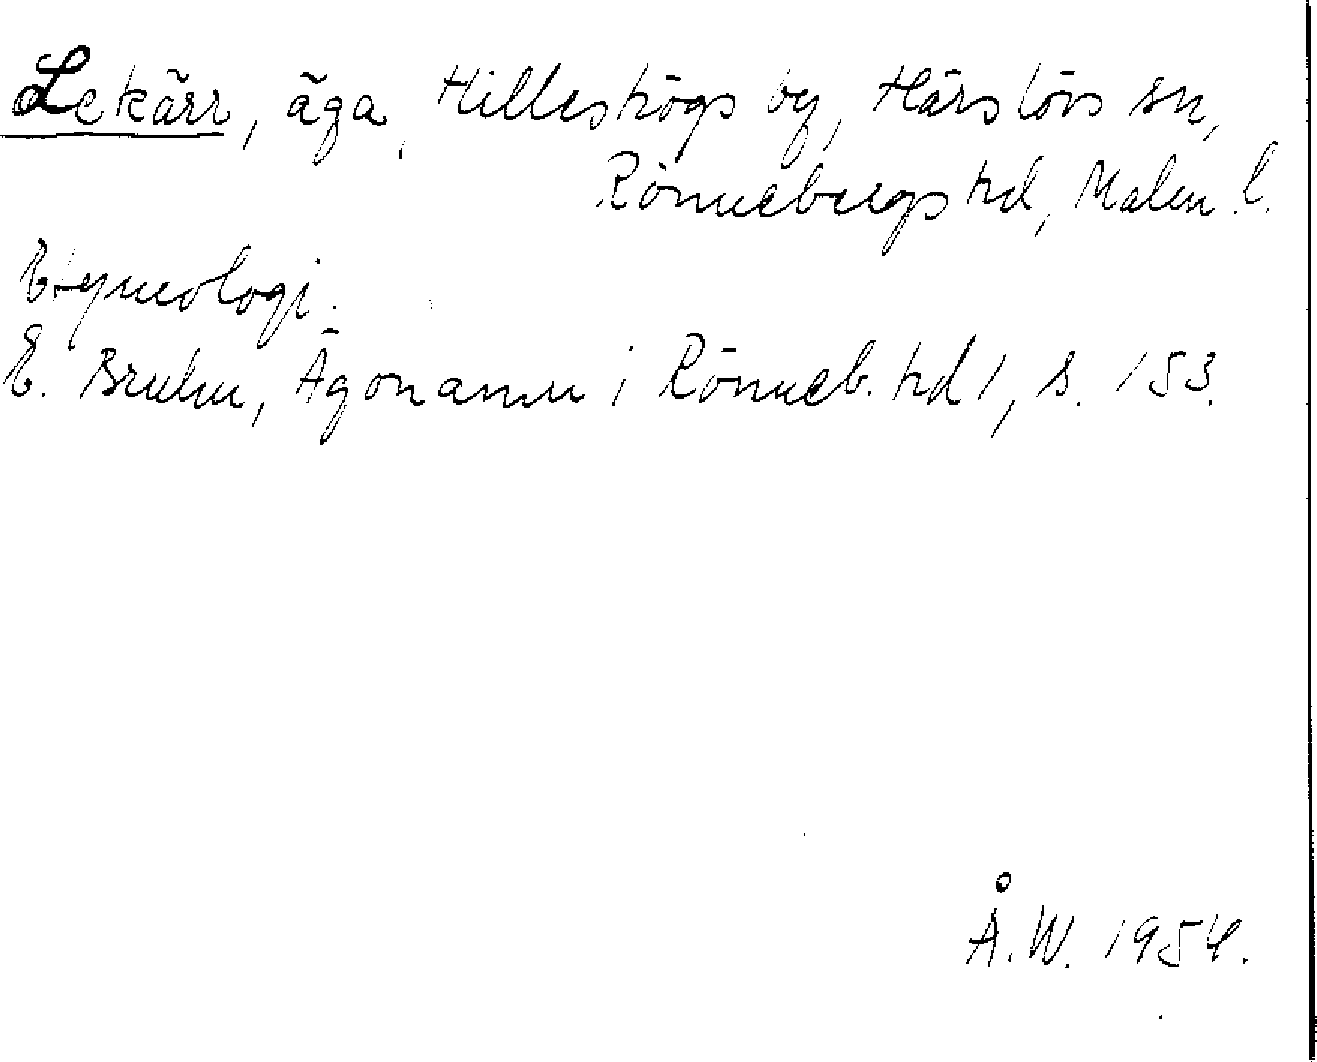 Lekärr, äga, Hilleshögs by, Härslövs sn,
Rönnebergs hd, Malm. l.
Etymologi.
E. Bruhn, Ägonamn i Rönneb. hd 1, s. 153.
Å.W. 1954.